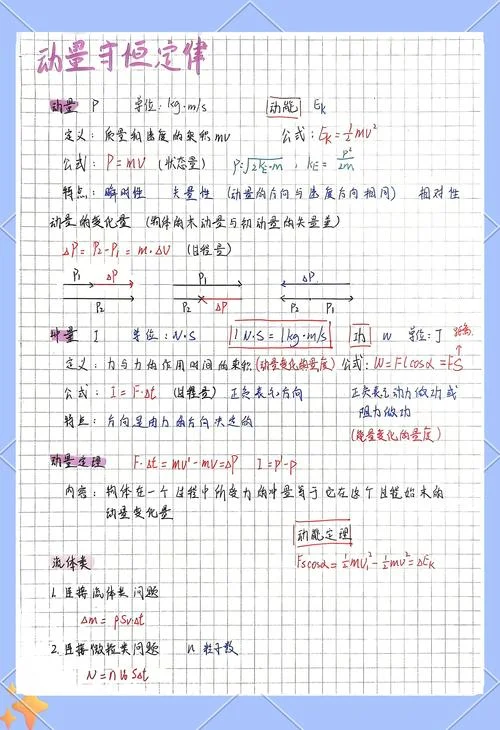 动量守恒定律
动量 P 单位：kg·m/s 动能 Ek
定义：质量和速度的乘积mv 公式：Ek=½mv²
公式：P=mv（状态量） P=√2KE·m，KE=P²/2m
特点：瞬时性 矢量性（动量的方向与速度方向相同） 相对性
动量的变化量（物体的末动量与初动量的矢量差）
ΔP=P2-P1=m·ΔV（过程量）
P1 ΔP P1 ΔP
P2 P2 ΔP P2 P1
冲量 I 单位：N·S 1N·S=1kg·m/s 功 W 单位：J 距离
定义：力与力的作用时间的乘积（动量变化的量度） 公式：W=Flcosα=FS
公式：I=F·Δt（过程量） 正负表示方向 正负表示动力做功或
阻力做功
特点：方向是由力的方向决定的
（能量变化的量度）
动量定理 F·Δt=mv'-mv=ΔP I=P'-P
内容：物体在一个过程中所受力的冲量等于它在这个过程始末的
动量变化量
动能定理
流体类 Fscosα=½mv₁²-½mv²=ΔEk
1.连接流体类问题
Δm=ρSv·Δt
2.连接微粒类问题 n 粒子数
N=nv0SΔt